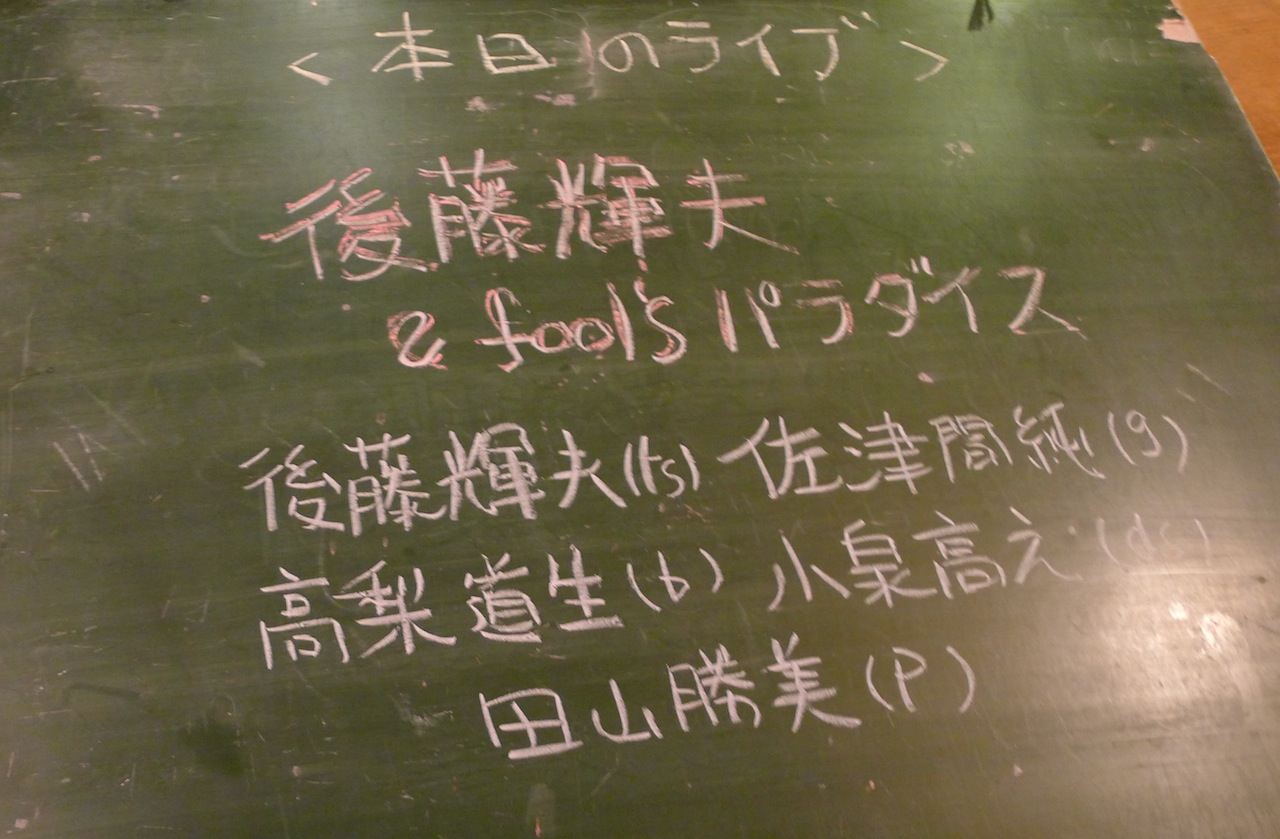 <本日のライブ>
後藤輝夫
& fool's パラダイス
後藤輝夫(ts) 佐津間純(g)
高梨道生(b) 小泉高之(ds)
田山勝美(P)